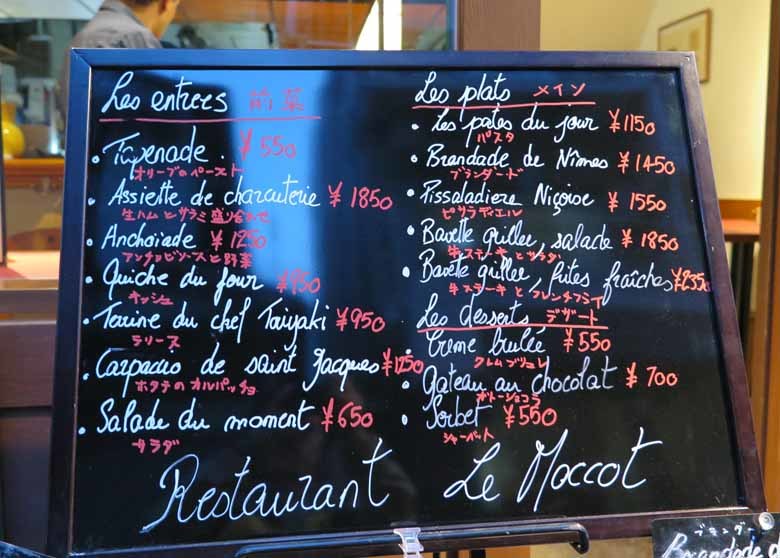 Les entrees 前菜
Tapenade. ¥550
オリーブのペースト
Assiette de charcuterie ¥1850
生ハムとサラミ盛り合わせ
Anchoïade ¥1250
アンチョビソースと野菜
Quiche du jour ¥950
キッシュ
Terrine du chef Taiyaki ¥950
テリーヌ
Carpacio de saint jacques ¥1250
ホタテのカルパッチョ
Salade du moment ¥650
サラダ
Les plats メイン
Les pates du jour ¥1150
パスタ
Brandade de Nîmes ¥1450
ブランダード
Pissaladiere Niçoise ¥1550
ピサラディエル
Bavette grillee, salade ¥1850
牛ステーキとサラダ
Bavette grillee, frites fraîches
牛ステーキとフレンチフライ
Les desserts デザート
Creme brulée ¥550
クレムブリュレ
Gateau au chocolat ¥700
ガトーショコラ
Sorbet ¥550
シャーベット
Restaurant Le Moccot
Brandade